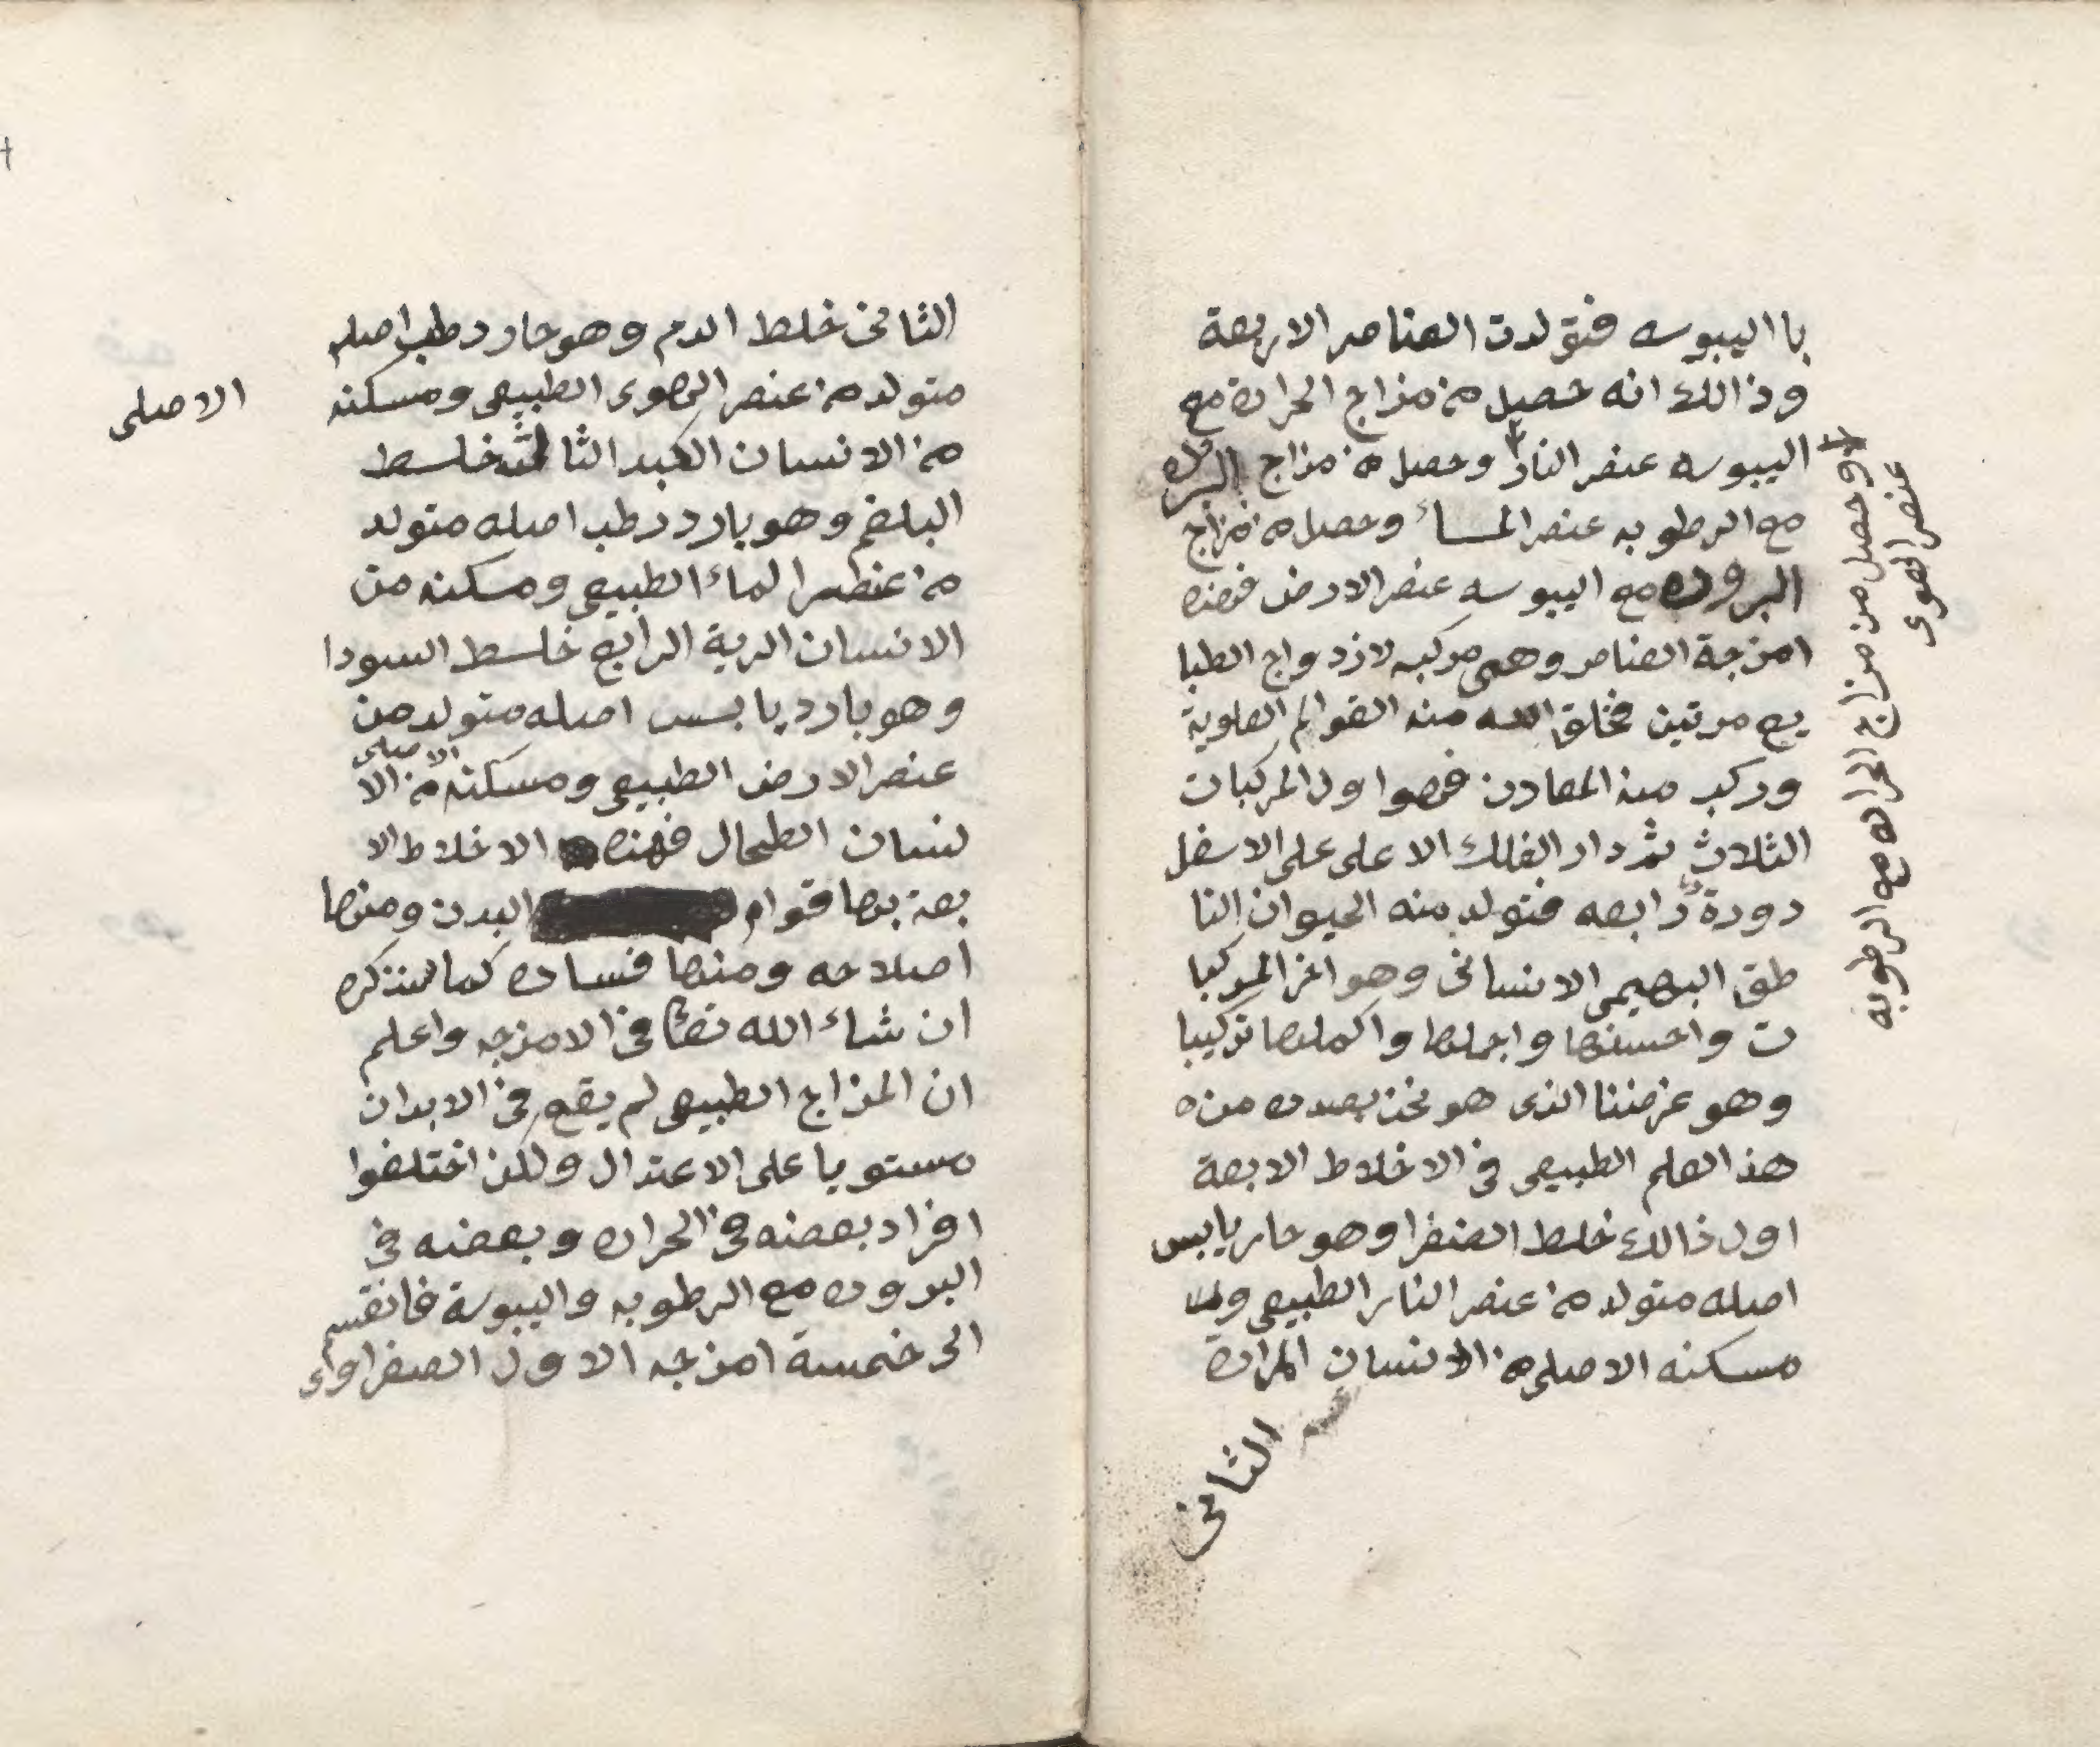 با اليبوسه فتولدت العناصر الاربعة
وذالك انه حصيل من مزاج الحراره مع
اليبوسه عنصر النار وحصل من مزاج البروده
مع الرطوبه عنصر الماء وحصل من مزاج
البروده مع اليبوسه عنصر الارض فهذه
امزجة العناصر وهى مركبه لازدواج الطبا
يع مرتين فخلق الله منه العوالم العلوية
وركب منه المعادن فهوا ول المركبات
الثلاث ثم دار الفلك الاعلى على الاسفل
دورة رابعه فتولد منه الحيوان النا
طق البهيمى الانسانى وهو اعز المركبا
ت واحسنها واجملها واكملها تركيبا
وهو غرضنا الذى هو نحن بصدده من
هذ العلم الطبيعى فى الاخلاط الابعة
اول ذالك خلط الصفرا وهو حار يابس
اصله متولد من عنصر النار الطبيعى و
مسكنه الاصلى من الانسان المرارة
الثانى
وحصل من مزاج الحراره مع الرطوبه
عنصر الهوى
الثانى خلط الدم وهو حار رطب اصله
متولد من عنصر الهوى الطبيعى ومسكنه
الاصلى
من الانسان الكبد الثالث خلط
البلغم وهو بارد رطب اصله متولد
من عنطصر الماء الطبيعى ومسكنه من
الانسان الرية الرابع خلط السودا
وهو بارد يابس اصله متولد من
عنصر الارض الطبيعى ومسكنه الاصلى من الا
نسان الطحال فهذه الاخلاط الا
بعة بها قوام البدن ومنها
اصلاحه ومنها فساده كما سنذكره
ان شاء الله تعا فى الامزجه واعلم
ان المزاج الطبيعى لم يقع فى الابدان
مستويا على الاعتدال ولكن اختلفوا
افراد بعضه فى الحراره وبعضه فى
البروده مع الرطوبه واليبوسة فانقسم
الى خمسة امزجه الاول الصفراوى